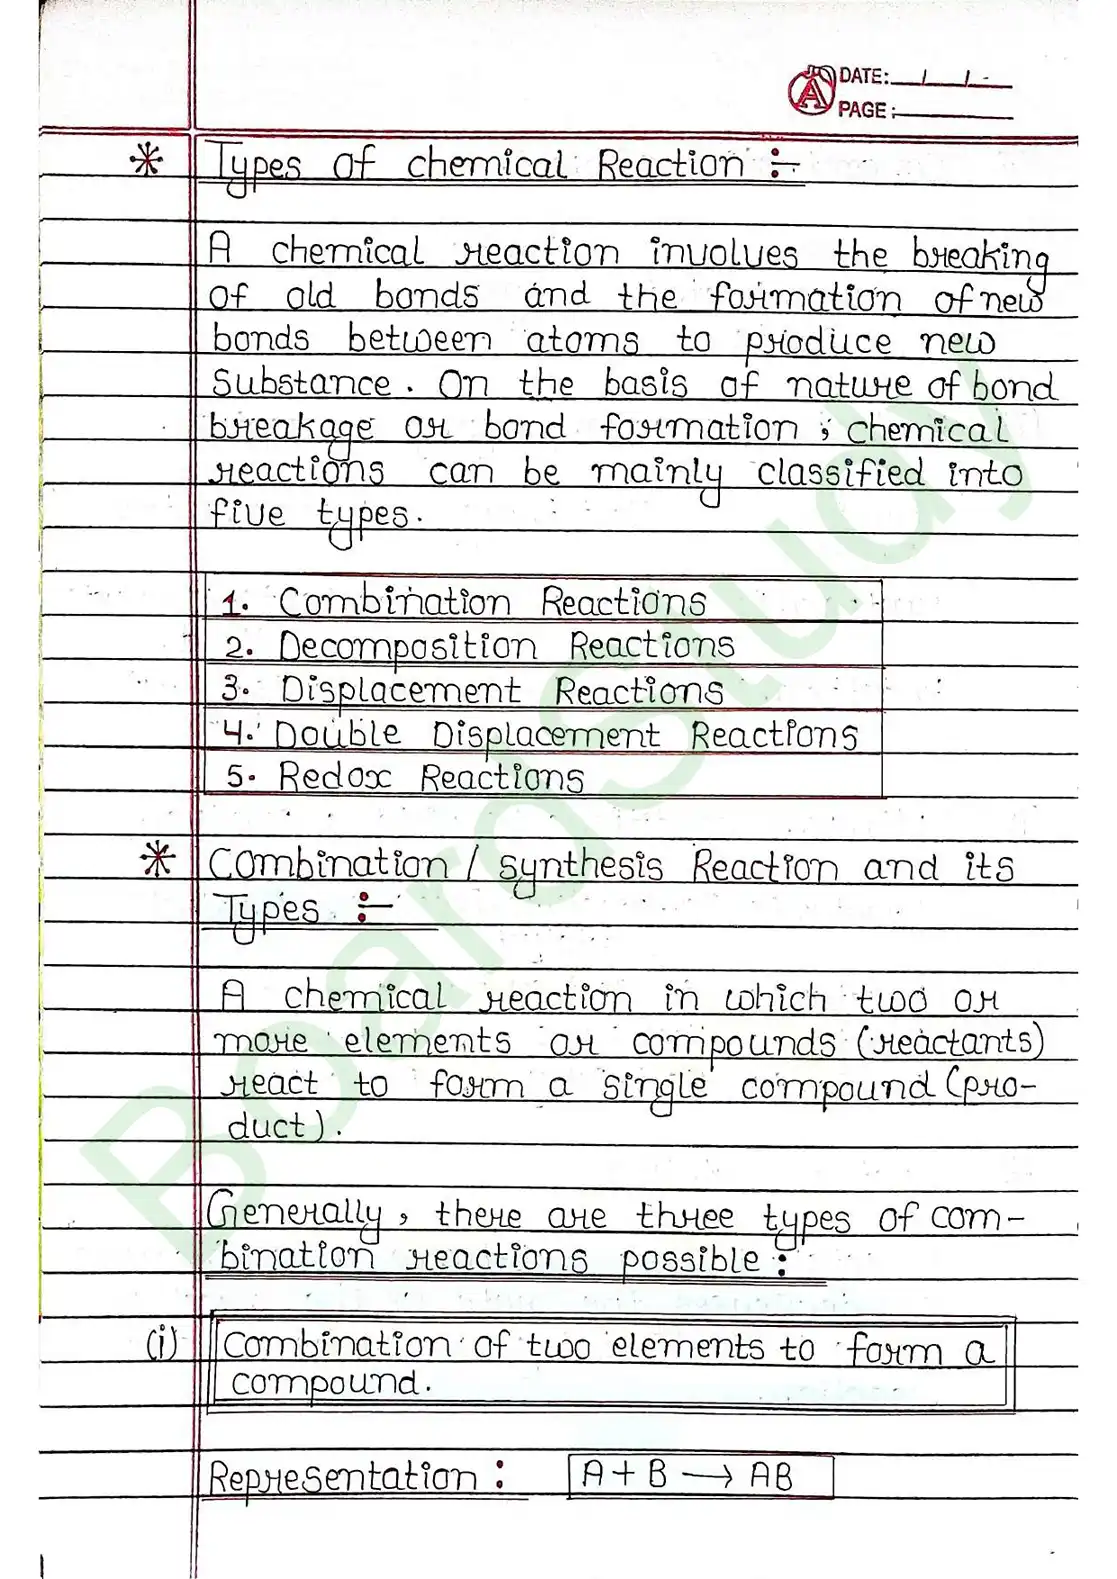 DATE: / /
PAGE:
* Types of chemical Reaction :-
A chemical reaction involves the breaking
of old bonds and the formation of new
bonds between atoms to produce new
Substance. On the basis of nature of bond
breakage or bond formation, chemical
reactions can be mainly classified into
five types.
1. Combination Reactions
2. Decomposition Reactions
3. Displacement Reactions
4. Double Displacement Reactions
5. Redox Reactions
* Combination / synthesis Reaction and its
Types :-
A chemical reaction in which two or
more elements or compounds (reactants)
react to form a single compound (pro-
duct).
Generally, there are three types of com-
bination reactions possible :
(i) Combination of two elements to form a
compound.
Representation : A + B → AB
BoardStudy